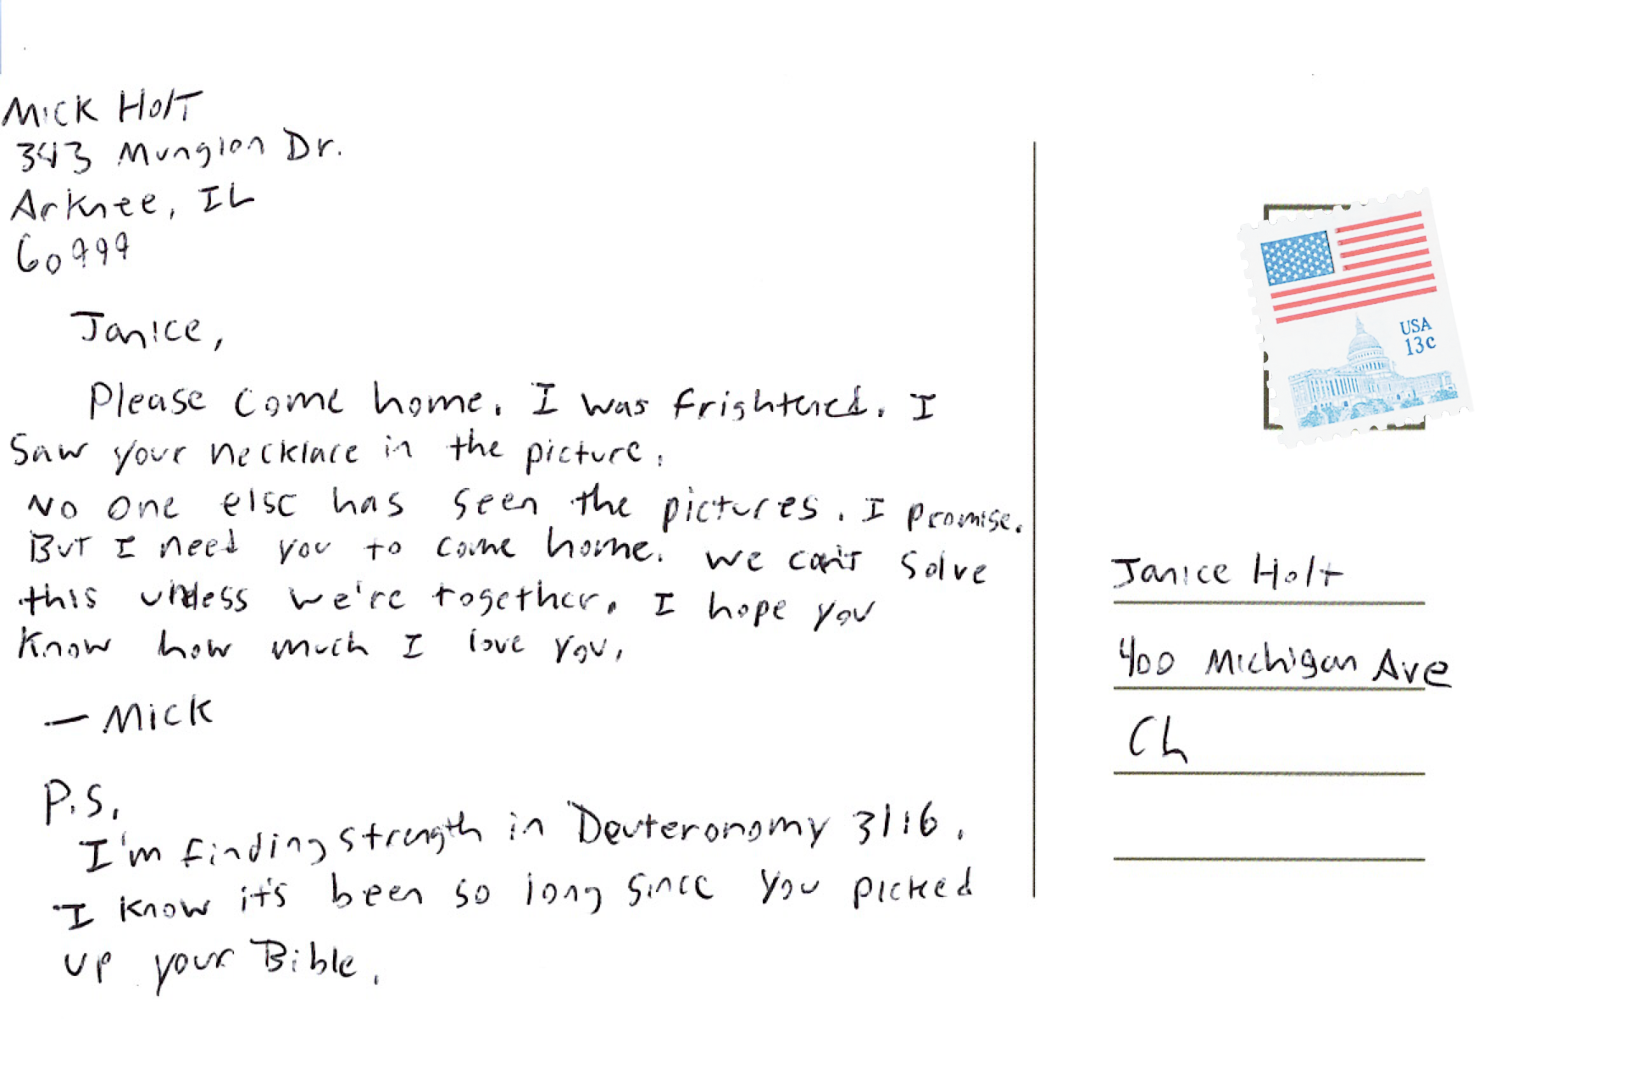 Mick Holt
343 Mungion Dr.
Arknee, IL
60999
Janice,
Please come home. I was frightened. I
saw your necklace in the picture.
No one else has seen the pictures. I promise.
But I need you to come home. We can't solve
this unless we're together. I hope you
know how much I love you.
— Mick
P.S.
I'm finding strength in Deuteronomy 3/16.
I know it's been so long since you picked
up your Bible.
USA
13c
Janice Holt
400 Michigan Ave
Ch